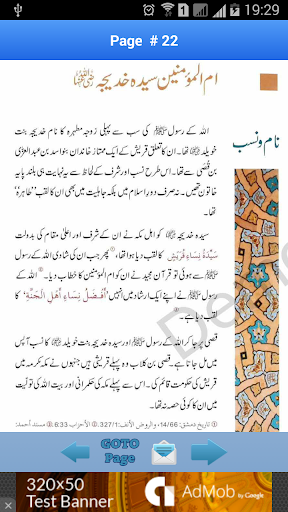 19:29
Page # 22
ام المؤمنین سیدہ خدیجہ رضی اللہ عنہا
نام و نسب
اللہ کے رسول ﷺ کی سب سے پہلی زوجہ مطہرہ کا نام خدیجہ بنت
خویلد رضی اللہ عنہا تھا۔ ان کا تعلق قریش کے ایک ممتاز خاندان بنو اسد بن عبدالعزیٰ
بن قُصی سے تھا۔ اس طرح نسب اور شرف کے لحاظ سے یہ نہایت ہی بلند پایہ
خاتون تھیں۔ نہ صرف دور اسلام میں بلکہ جاہلیت میں بھی ان کا لقب ’’طاہرہ‘‘
تھا۔
سیدہ خدیجہ رضی اللہ عنہا کو اہل مکہ نے ان کے شرف اور اعلیٰ مقام کی بدولت
سَيِّدَةُ نِسَاءِ قُرَيْشٍ کا لقب دیا ہوا تھا۔ پھر جب ان کی شادی اللہ کے رسول
ﷺ سے ہوئی تو قرآن مجید نے ان کو ام المؤمنین کا خطاب دیا۔ اللہ کے
رسول ﷺ نے اپنے ایک ارشاد میں انہیں ’’أَفْضَلُ نِسَاءِ أَهْلِ الْجَنَّةِ‘‘ کا
لقب دیا ہے۔
قصی پر جا کر اللہ کے رسول ﷺ اور سیدہ خدیجہ بنت خویلد کا نسب آپس
میں مل جاتا ہے۔ قصی بن کلاب وہ پہلے قریشی ہیں جنہوں نے مکہ مکرمہ میں
قریش کی حکومت قائم کی۔ ان سے پہلے مکہ کی حکمرانی اور بیت اللہ کی تولیت
میں ان کا کوئی حصہ نہ تھا۔
① تاریخ دمشق: 14/66، والروض الأنف: 327/1. ② الأحزاب 6:33. ③ مسند أحمد:
GOTO
Page
320x50
Test Banner
AdMob by Google